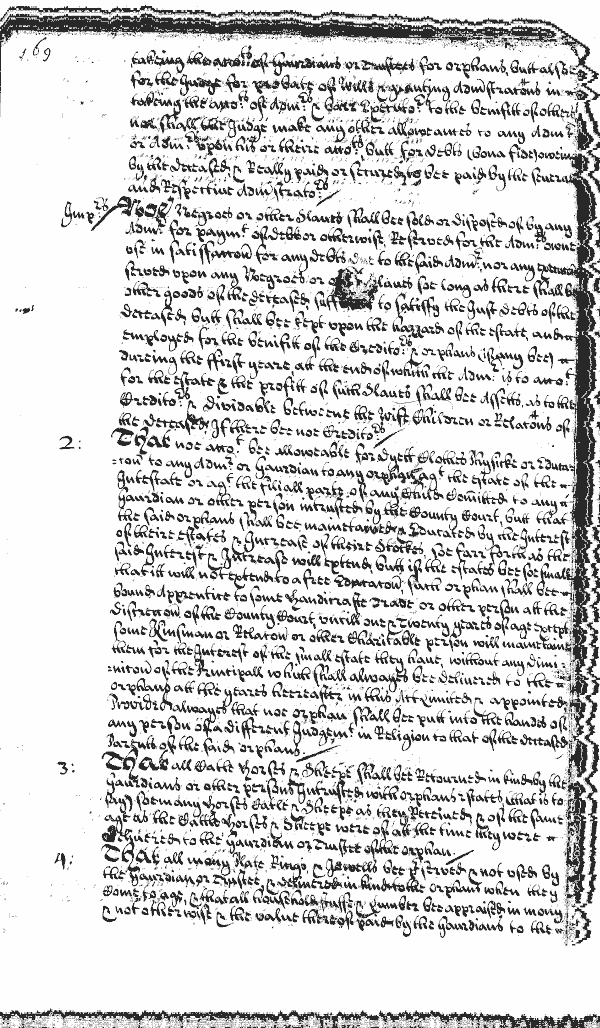 169
takeing the acco:ts of Guardians or Trustees for orphans, butt alsoe
for the Judge for probate of Wills & granting Adm:istrac̄ons in
takeing the acco:ts of Adm:rs & Executo:rs To the benifitt of others
nor shall the Judge make any other allowances to any Adm:r
or Adm:rs upon his or theire acco:ts butt for debts (bona fide) oweing
by the deceased & Really paid or secured to bee paid by the severall
and Respective Administrato:rs
Imp:rs Noe Negroes or other Slaves shall bee sold or disposed of by any
Adm:r for paym:t of debt or otherwise, Reserved for the Adm:rs owne
use in satisfacc̄on for any debts due to the said Adm:r, nor any
served upon any Negroes or other slaves soe long as there shall be
other goods of the deceased sufficient to satisfy the Just debts of the
deceased butt shall bee kept upon the hazzard of the estate, and
employed for the benifitt of the Credito:rs & orphans (if any bee)
dureing the ffirst yeare att the end of which the Adm:r is to acco:t
for the estate & the profitt of such Slaves shall bee Assetts, as to the
Credito:rs & Dividable betweene the Wife Children or Relac̄ons of
the deceased If there bee noe Credito:rs
2: That noe acco:t bee allowable for Dyett Clothes Physicke or Educa
=c̄on to any Adm:r or Guardian to any orphans, ag:t the estate of the
Intestate or ag:t the filiall parte of any Child Com̄itted to any
Guardian or other person intrusted by the County Court, butt that
the said orphans shall bee maintained & Educated by the Interest
of theire estates & Increase of theire Stockes, soe farr forth as the
said Interest & Increase will extend, butt if the estates bee soe small
that itt will not extend to a free Educac̄on, such orphan shall bee
bound Apprentice to some Handicrafte Trade, or other person att the
discretion of the County Court, untill one & Twenty yeares of age except
some Kinsman or Relac̄on or other Charitable person will maintaine
them for the Interest of the small estate they have, without any dimi
=nuc̄on of the Principall which shall alwayes bee delivered to the
orphans att the yeares hereafter in this Act Limited & appointed
Provided alwayes that noe orphan shall bee putt into the hands of
any person of a different Judgem:t in Religion to that of the deceased
Parents of the said orphans.
3: That all Catle Horses & Sheepe shall bee Retourned in kind by the
Guardians or other persons Intrusted with orphans estates (that is to
say) soe many Horses Catle & Sheepe as they Received & of the same
age as the Cattle Horses & Sheepe were of att the time they were
Delivered to the Guardian or Trustee of the orphan
4: That all mony Plate Rings, & Jewells bee p̱served & not used by
the Guardian or Trustee, & delivered in kind to the orphans when they
Come to age, & that all household stuffe & Lumber bee appraised in mony
& not otherwise & the value thereof paid by the Guardians to the